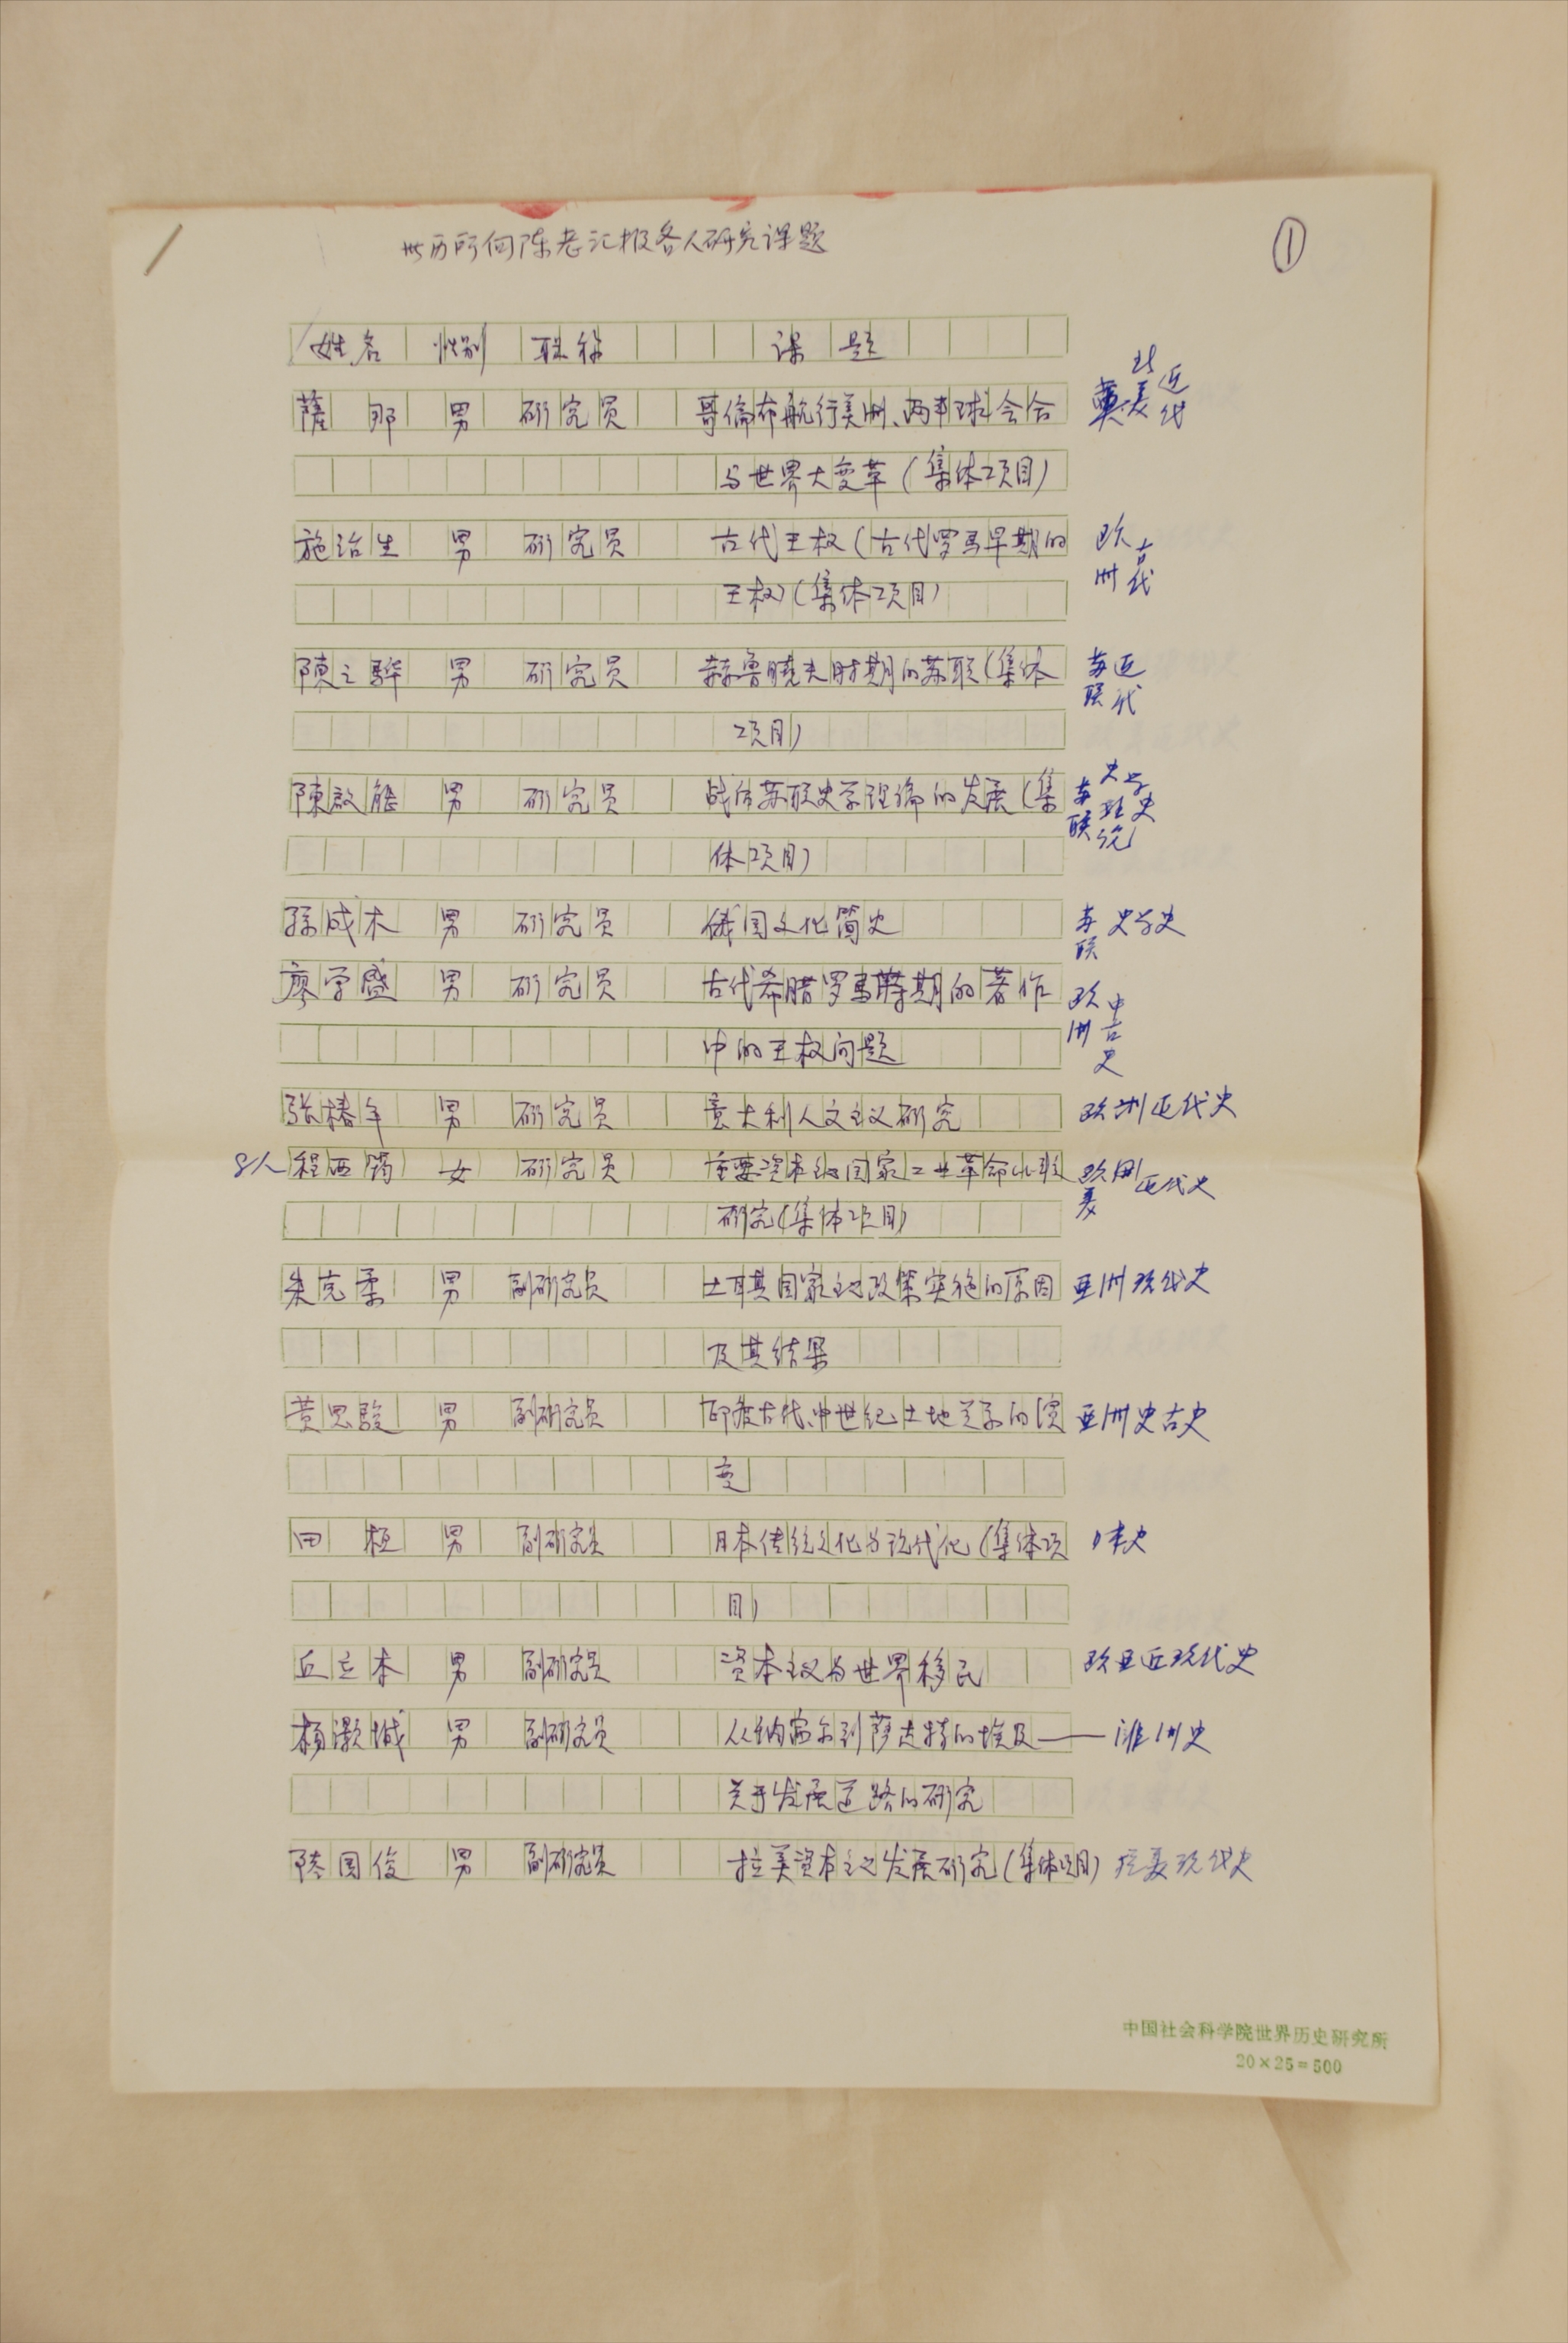 世历所向陈老汇报各人研究课题
①
姓名 性别 职称 课题
薩那 男 研究员 哥倫布航行美洲、两半球会合 北美近代
与世界大变革（集体项目）
施治生 男 研究员 古代王权（古代罗马早期的 欧洲古代
王权）（集体项目）
陳之骅 男 研究员 赫鲁曉夫时期的苏联（集体 苏联近代
项目）
陳啟能 男 研究员 战后苏联史学理論的发展（集 苏联史学史
体项目）
孫成木 男 研究员 俄国文化简史 苏联史学史
廖学盛 男 研究员 古代希腊罗马时期的著作 欧洲中古史
中的王权问题
张椿年 男 研究员 意大利人文主义研究 欧洲近代史
8人 程西筠 女 研究员 重要资本主义国家工业革命比較 欧洲美近代史
研究（集体项目）
朱克柔 男 副研究员 土耳其国家主义政策实施的原因 亚洲现代史
及其结果
黄思骏 男 副研究员 印度古代、中世纪土地关系的演 亚洲史古史
变
田桓 男 副研究员 日本传统文化与现代化（集体项 日本史
目）
丘立本 男 副研究员 资本主义与世界移民 欧亚近现代史
杨灏城 男 副研究员 从纳赛尔到萨达特的埃及—— 非洲史
关于发展道路的研究
陆国俊 男 副研究员 拉美资本主义发展研究（集体项目） 拉美现代史
中国社会科学院世界历史研究所
20×25=500